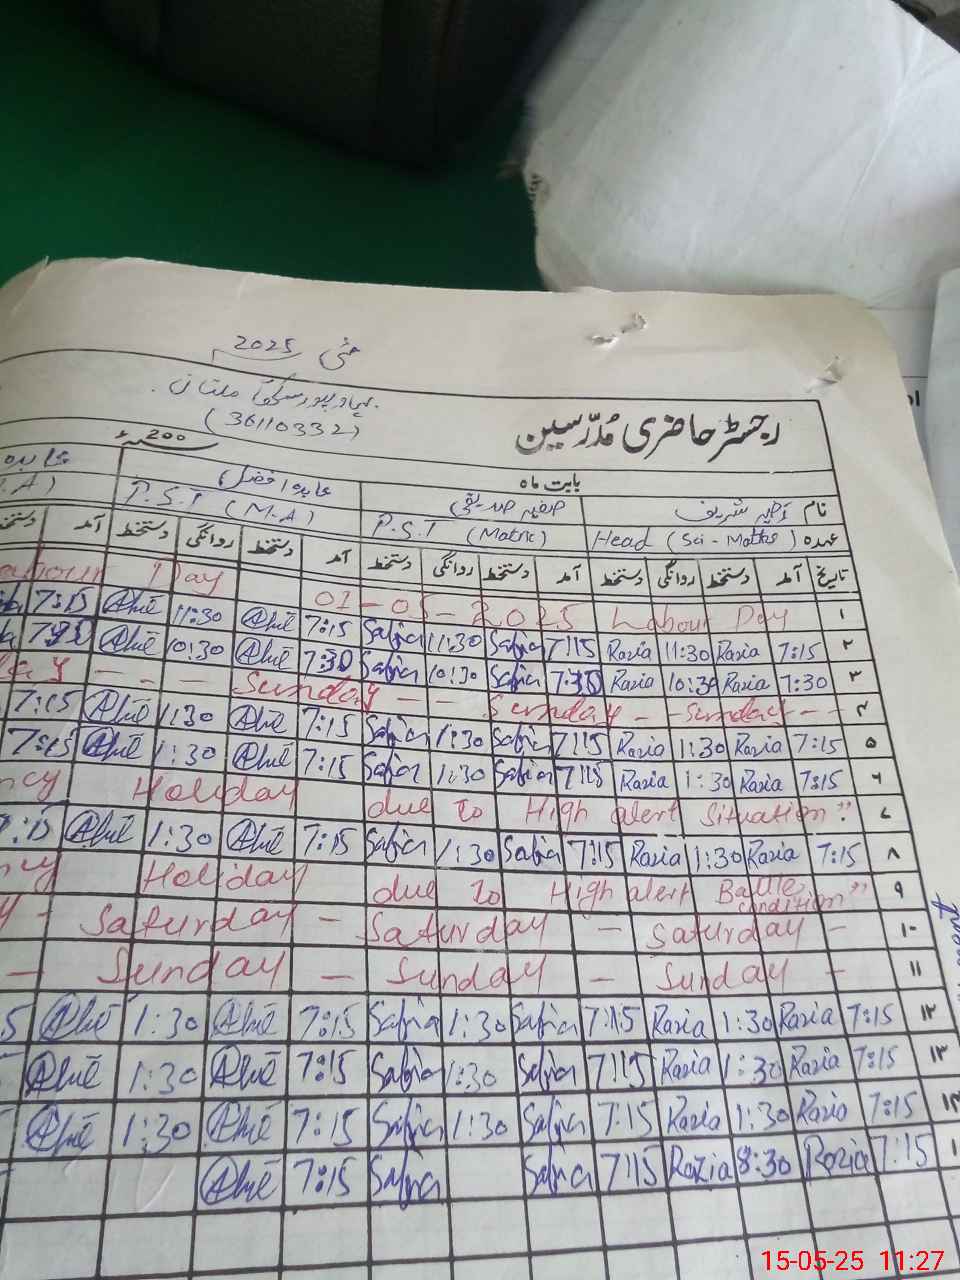 مئی 2025
بہادرپور سکوکا ملتان
(36110332)
رجسٹر حاضری مُدرّسین
بابت ماہ 200ء
نام رضیہ شریف صفیہ صدیقی عابدہ افضل عابدہ
عہدہ Head (Sci - Maths) P.S.T (Matric) P.S.T (M.A) .A)
تاریخ آمد دستخط روانگی دستخط آمد دستخط روانگی دستخط آمد دستخط روانگی دستخط آمد دستخط
abour Day 01-05-2025 Labour Day ۱
7:15 11:30 7:15 Safia 11:30 Safia 7:15 Razia 11:30 Razia 7:15 ۲
7:30 10:30 7:30 Safia 10:30 Safia 7:30 Razia 10:30 Razia 7:30 ۳
day - - - Sunday - - Sunday - - Sunday - - ۴
7:15 1:30 7:15 Safia 1:30 Safia 7:15 Razia 1:30 Razia 7:15 ۵
7:15 1:30 7:15 Safia 1:30 Safia 7:15 Razia 1:30 Razia 7:15 ۶
ncy Holiday due to High alert Situation" ۷
7:15 1:30 7:15 Safia 1:30 Safia 7:15 Razia 1:30 Razia 7:15 ۸
ncy Holiday due to High alert Battle condition" ۹
y - Saturday - Saturday - Saturday - ۱۰
- Sunday - Sunday - Sunday - ۱۱
5 1:30 7:15 Safia 1:30 Safia 7:15 Razia 1:30 Razia 7:15 ۱۲
1:30 7:15 Safia 1:30 Safia 7:15 Razia 1:30 Razia 7:15 ۱۳
1:30 7:15 Safia 1:30 Safia 7:15 Razia 1:30 Razia 7:15 ۱۴
7:15 Safia Safia 7:15 Razia 8:30 Razia 7:15 ۱
15-05-25 11:27